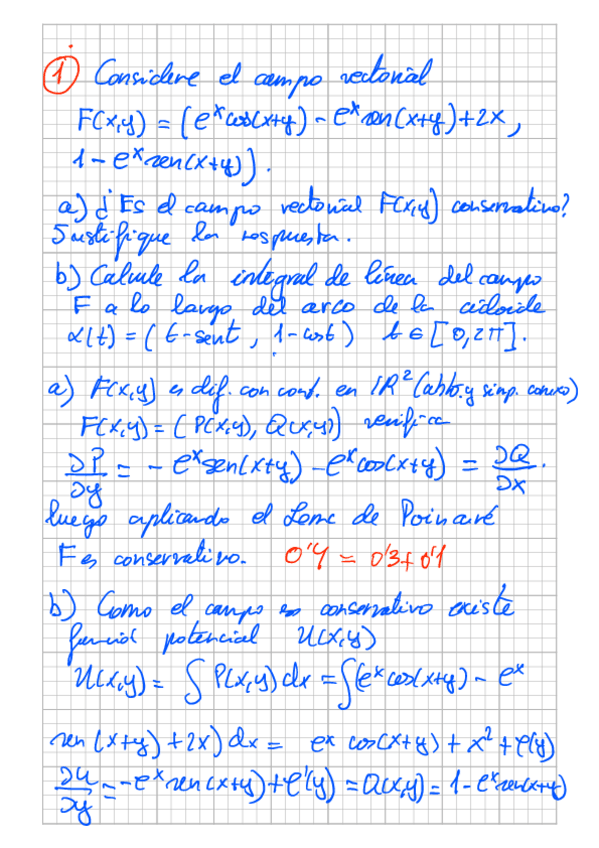 1 Considere el campo vectorial
F(x,y) = (e^x cos(x+y) - e^x sen(x+y) + 2x,
1 - e^x sen(x+y)).
a) ¿Es el campo vectorial F(x,y) conservativo?
Justifique la respuesta.
b) Calcule la integral de línea del campo
F a lo largo del arco de la cicloide
α(t) = (t - sent, 1 - cost) t ∈ [0, 2π].
a) F(x,y) es dif. con cont. en IR² (abto. y simp. conexo)
F(x,y) = (P(x,y), Q(x,y)) verifica
∂P/∂y = - e^x sen(x+y) - e^x cos(x+y) = ∂Q/∂x.
luego aplicando el Lema de Poincaré
F es conservativo. 0'4 = 0'3 + 0'1
b) Como el campo es conservativo existe
función potencial U(x,y)
U(x,y) = ∫ P(x,y) dx = ∫(e^x cos(x+y) - e^x
sen(x+y) + 2x) dx = e^x cos(x+y) + x² + φ(y)
∂U/∂y = - e^x sen(x+y) + φ'(y) = Q(x,y) = 1 - e^x sen(x+y)